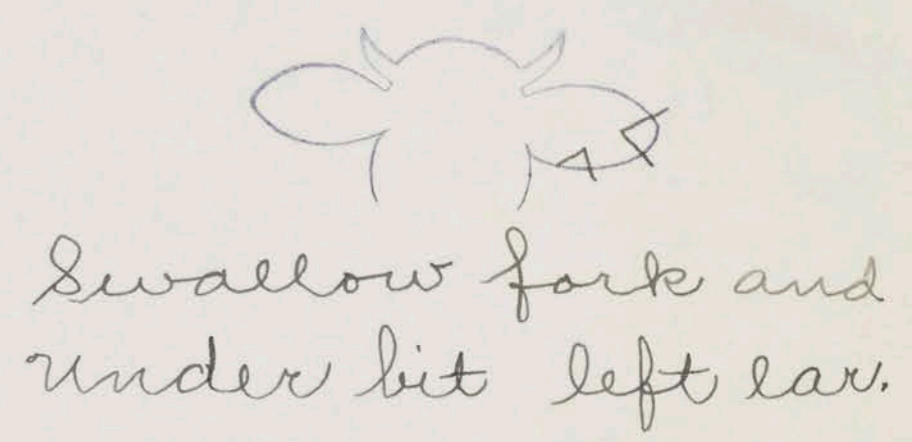 Swallow fork and
under bit left ear.